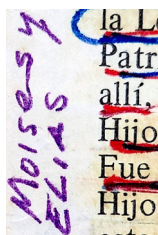 Moises y
ELIAS
la L
Patr
allí,
Hijo
Fue
Hijo